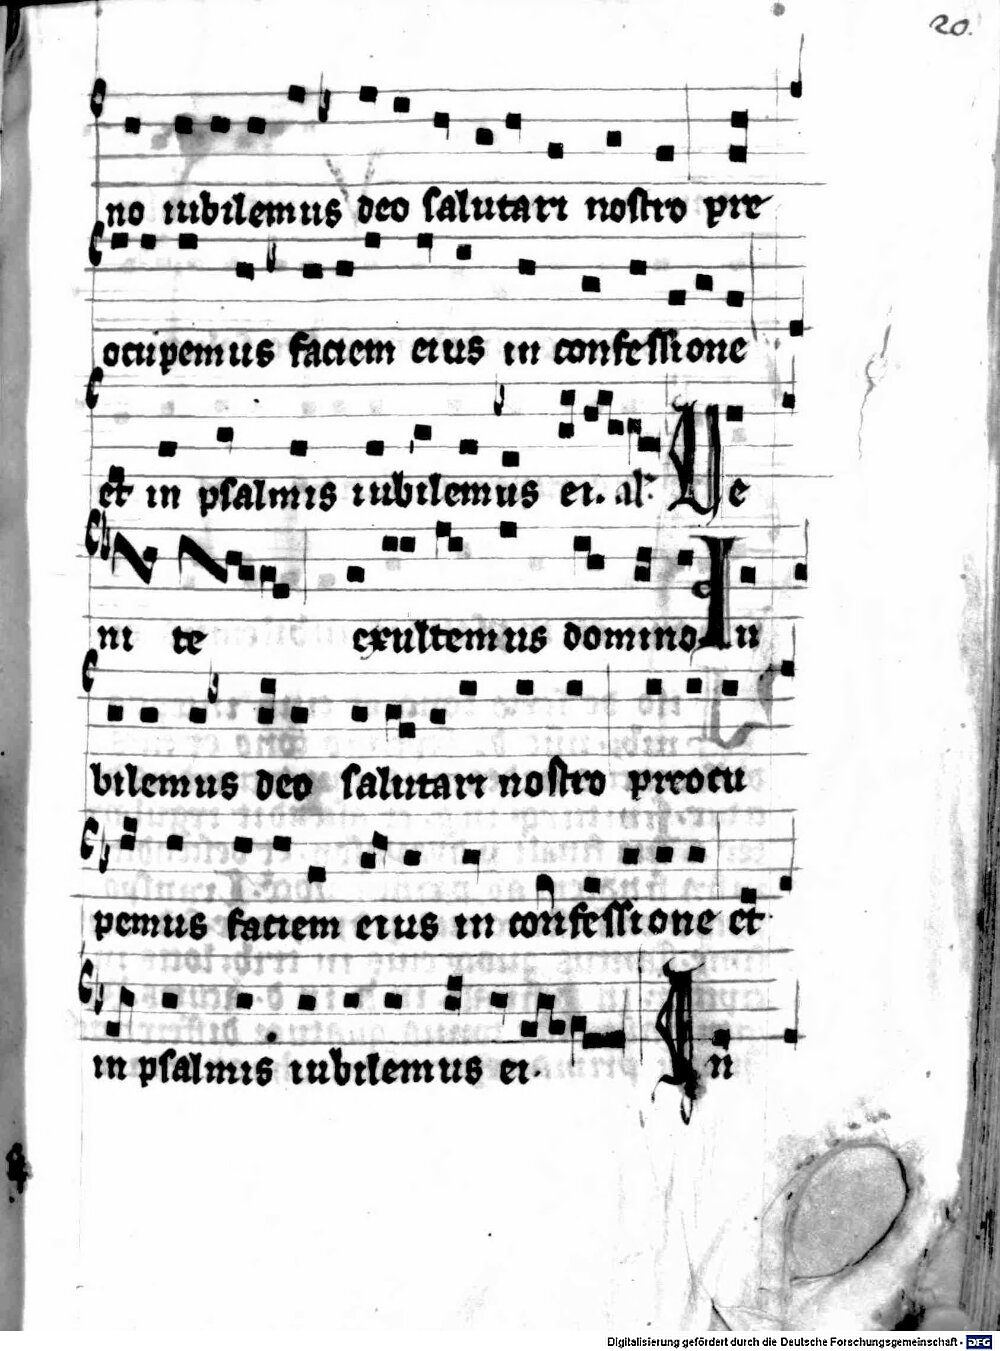 20.
no iubilemus deo salutari nostro pre
ocupemus faciem eius in confessione
et in psalmis iubilemus ei. al' Ve
ni te exultemus domino Iu
bilemus deo salutari nostro preocu
pemus faciem eius in confessione et
in psalmis iubilemus ei. An
Digitalisierung gefördert durch die Deutsche Forschungsgemeinschaft - DFG